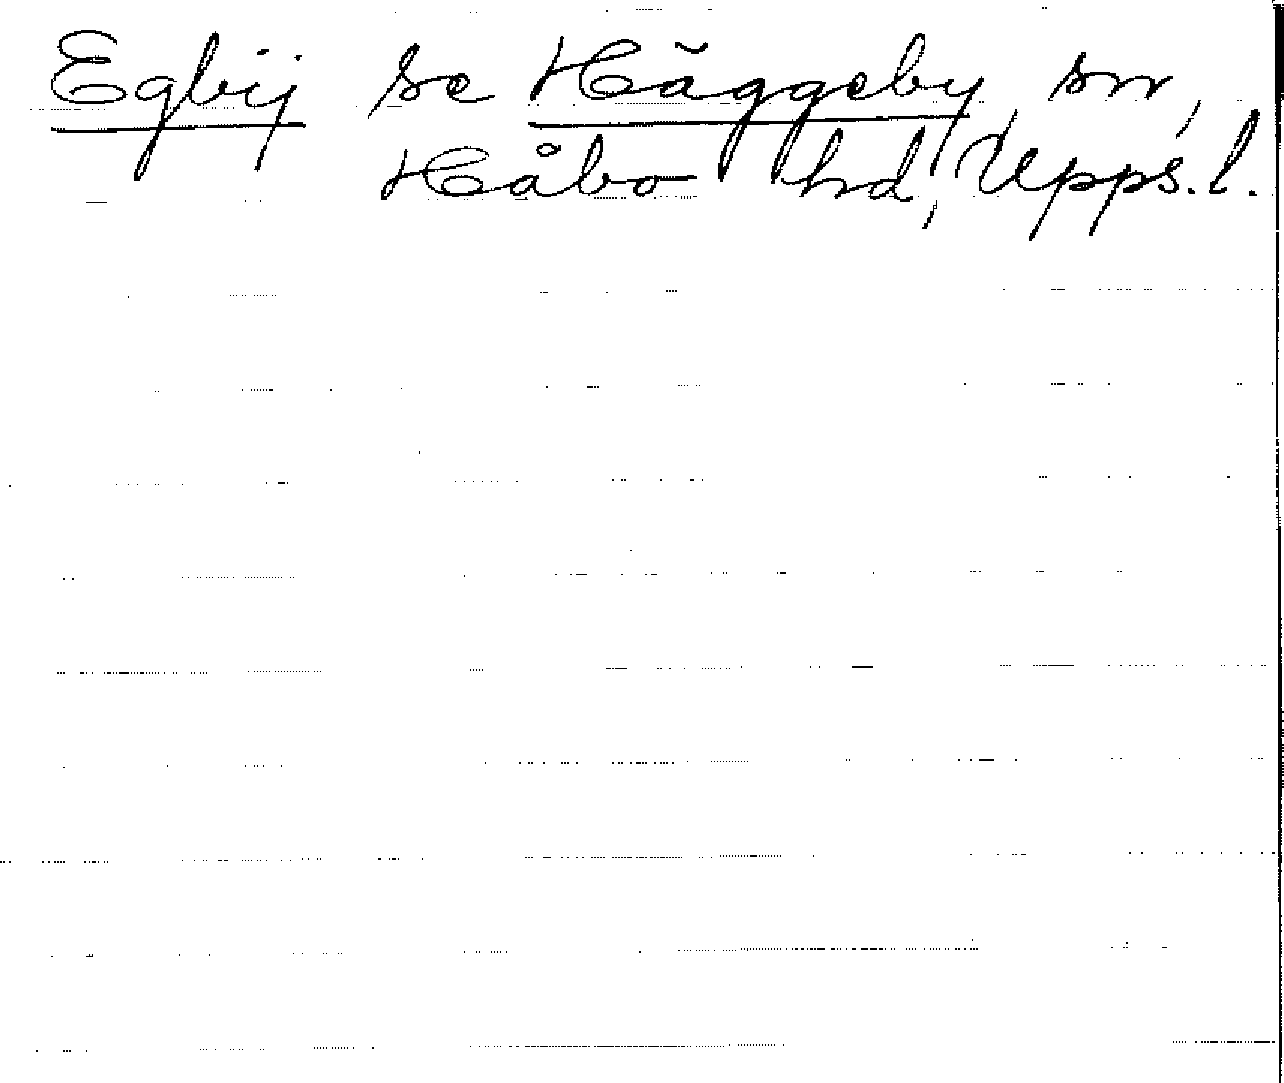 Egbij se Häggeby sn,
Håbo hd, Upps. l.